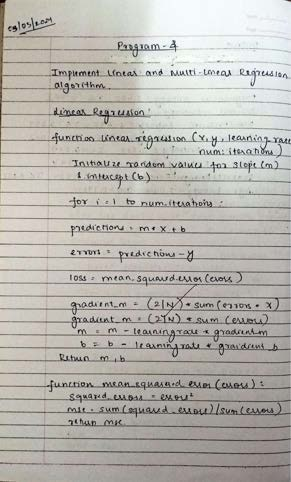 03/05/2024
Program - 4
Implement Linear and Multi-Linear Regression
algorithm.
Linear Regression:
function linear_regression (x, y, learning rate
num: iterations)
Initialize random values for slope (m)
& intercept (b)
for i = 1 to num. iterations:
predictions = m * x + b
errors = predictions - y
loss = mean_squared_error (errors)
gradient_m = (2/N) * sum (errors * x)
gradient_m = (2/N) * sum (errors)
m = m - learning rate * gradient_m
b = b - learning rate * graident_b
Return m, b
function mean_squared_error (errors):
squared_errors = errors²
mse = sum (squared_errors) / sum (errors)
return mse.